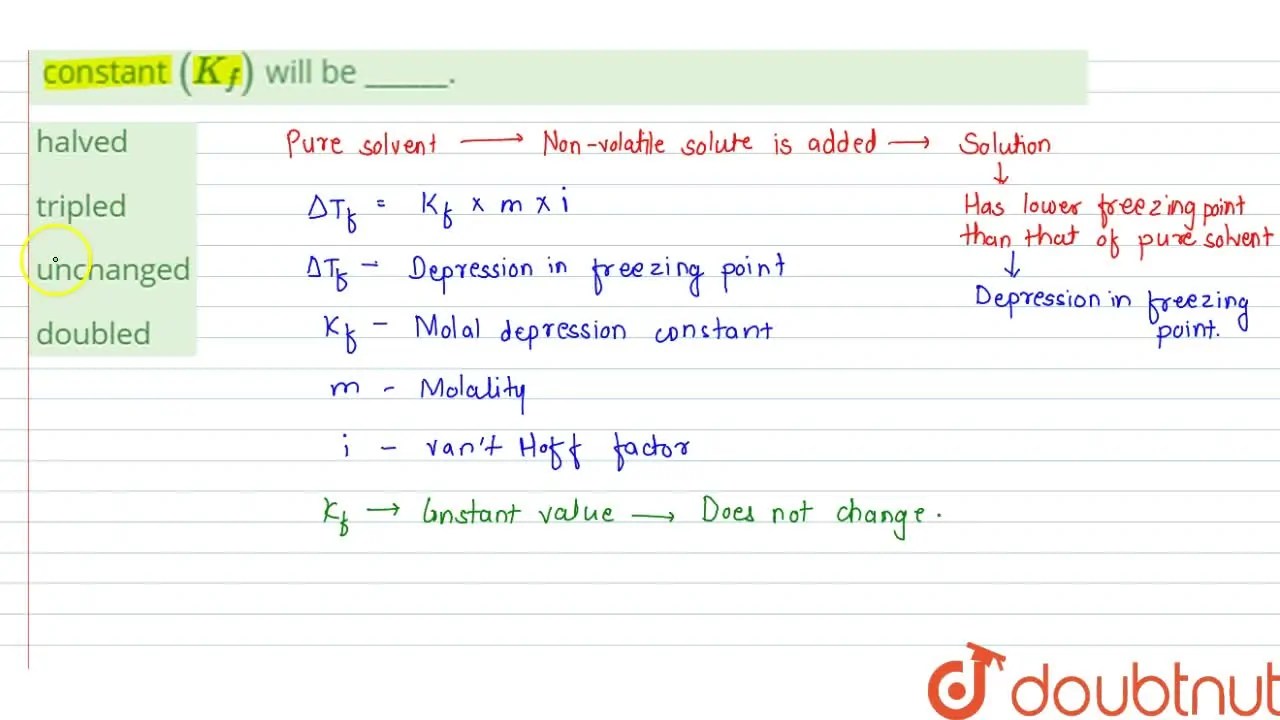 constant (K_f) will be _____.
halved
tripled
unchanged
doubled
Pure solvent ⟶ Non-volatile solute is added ⟶ Solution
↓
Has lower freezing point
than that of pure solvent
↓
Depression in freezing
point.
ΔT_f = K_f × m × i
ΔT_f – Depression in freezing point
K_f – Molal depression constant
m – Molality
i – van't Hoff factor
K_f → Constant value ⟶ Does not change.
doubtnut